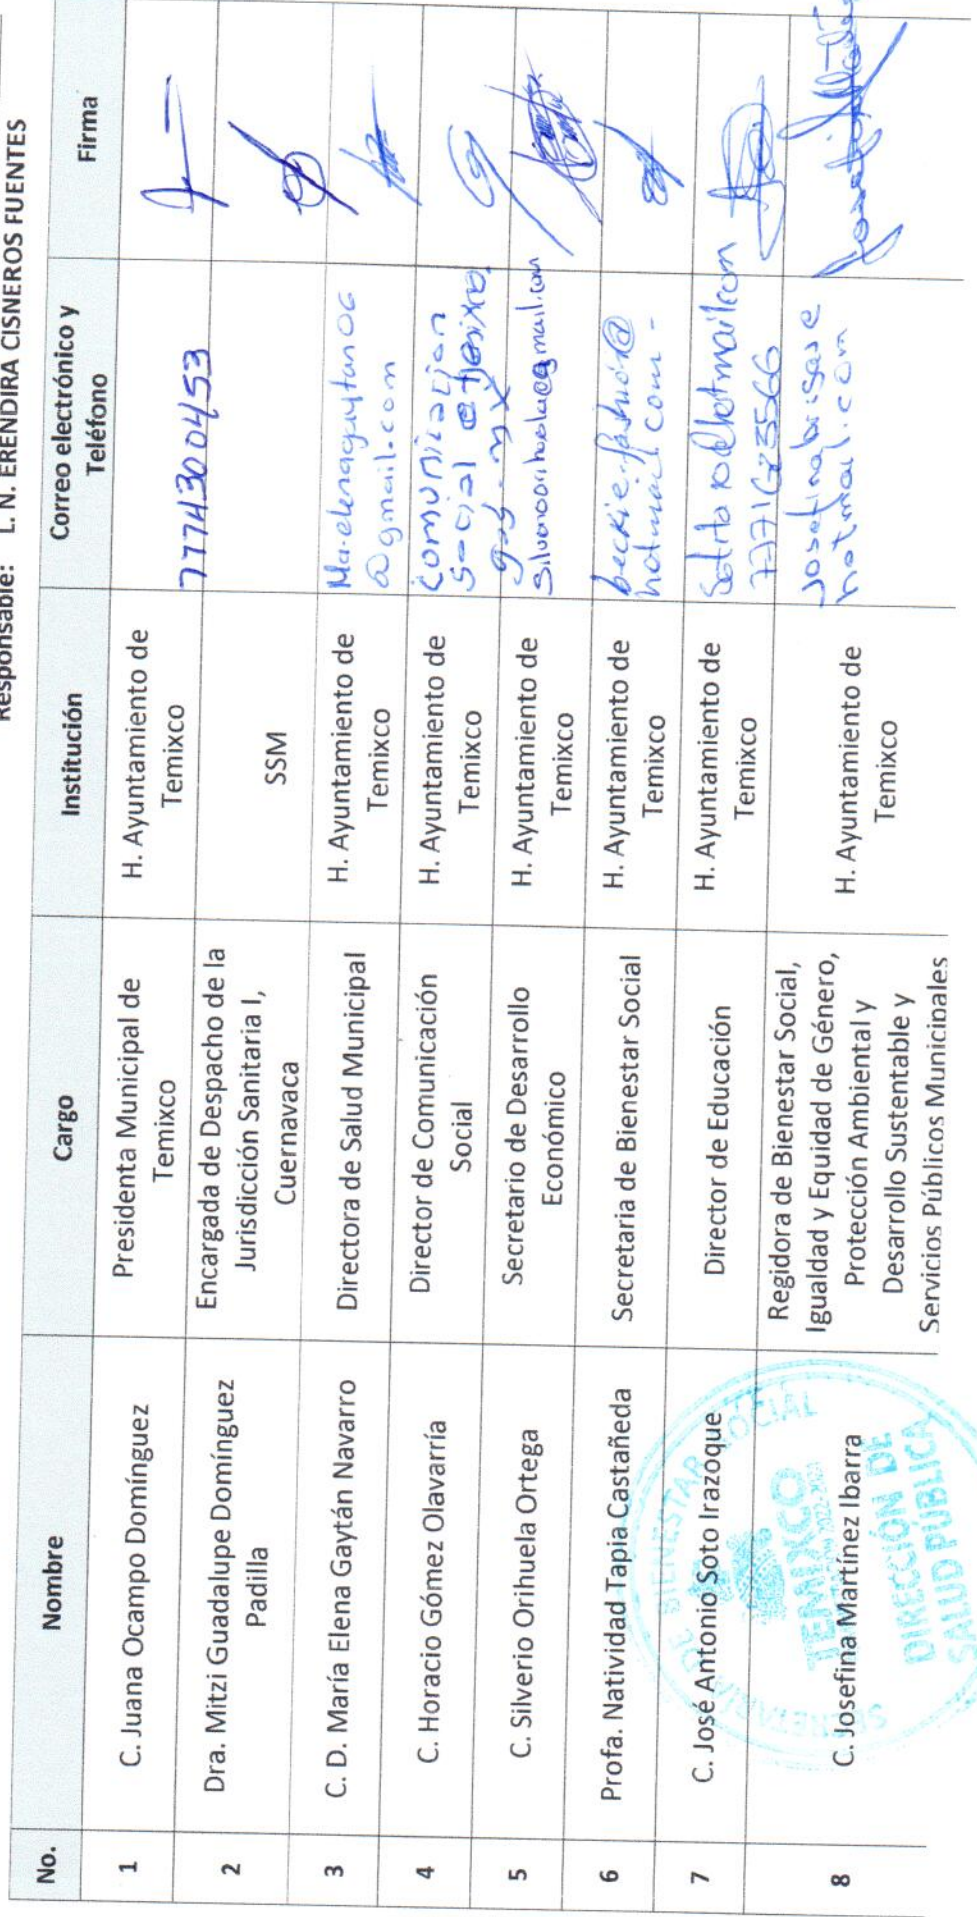 Responsable: L. N. ERENDIRA CISNEROS FUENTES
No. Nombre Cargo Institución Correo electrónico y Teléfono Firma
1 C. Juana Ocampo Domínguez Presidenta Municipal de Temixco H. Ayuntamiento de Temixco
2 Dra. Mitzi Guadalupe Domínguez Padilla Encargada de Despacho de la Jurisdicción Sanitaria I, Cuernavaca SSM 7774300453
3 C. D. María Elena Gaytán Navarro Directora de Salud Municipal H. Ayuntamiento de Temixco Ma.elenagaytan06
@gmail.com
4 C. Horacio Gómez Olavarría Director de Comunicación Social H. Ayuntamiento de Temixco comunicacion
social@temixco.
gob.mx
5 C. Silverio Orihuela Ortega Secretario de Desarrollo Económico H. Ayuntamiento de Temixco
6 Profa. Natividad Tapia Castañeda Secretaria de Bienestar Social H. Ayuntamiento de Temixco
hotmail.com
7 C. José Antonio Soto Irazoque Director de Educación H. Ayuntamiento de Temixco
8 C. Josefina Martínez Ibarra Regidora de Bienestar Social, Igualdad y Equidad de Género, Protección Ambiental y Desarrollo Sustentable y Servicios Públicos Municipales H. Ayuntamiento de Temixco
hotmail.com
SECRETARÍA DE BIENESTAR SOCIAL
TEMIXCO
DIRECCIÓN DE
SALUD PUBLICA